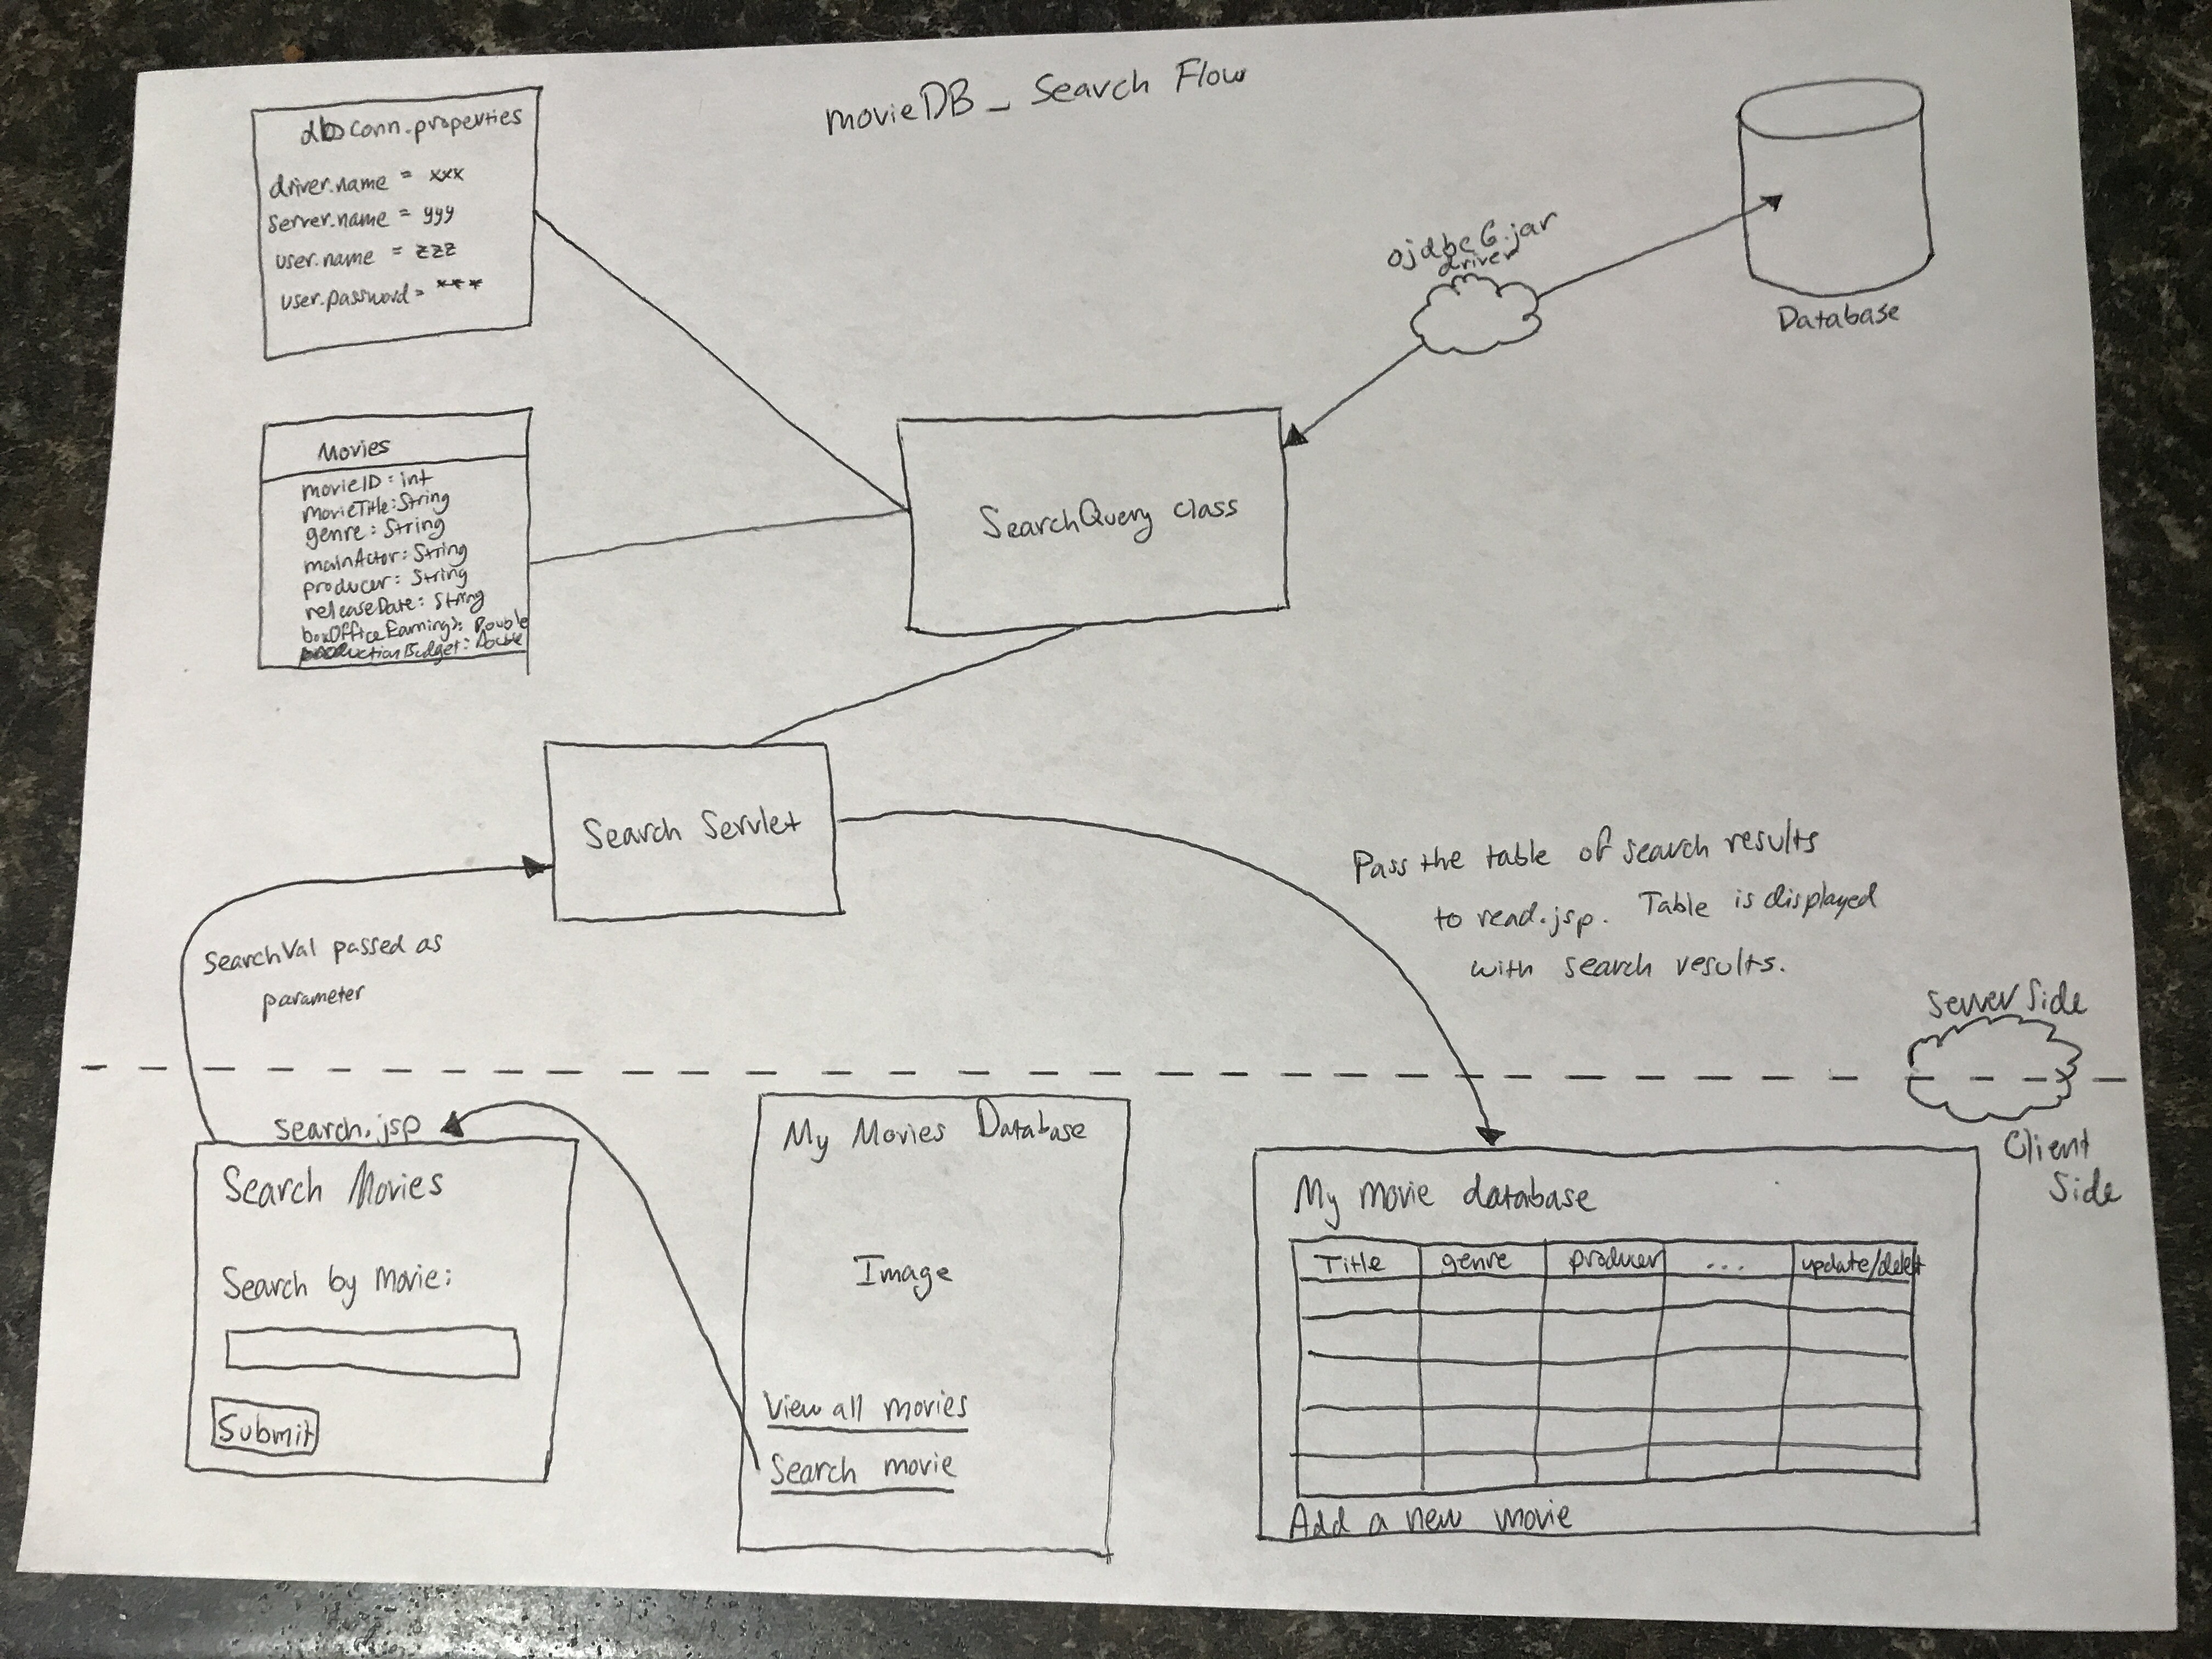 movieDB_ Search Flow
dbconn.properties
driver.name = xxx
server.name = yyy
user.name = zzz
user.password = ***
Movies
movieID: int
movieTitle: String
genre: String
mainActor: String
producer: String
releaseDate: String
boxOfficeEarnings: Double
productionBudget: Double
SearchQuery class
ojdbc6.jar
driver
Database
Search Servlet
SearchVal passed as
parameter
Pass the table of search results
to read.jsp. Table is displayed
with search results.
Server Side
Client
Side
search.jsp
Search Movies
Search by Movie:
Submit
My Movies Database
Image
View all movies
Search movie
My movie database
Title genre producer ... update/delete
Add a new movie